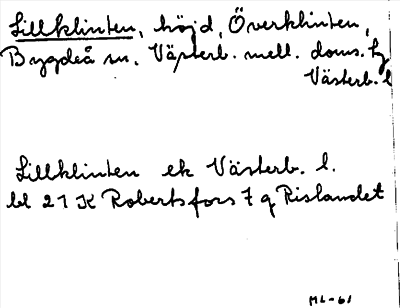 Lillklinten, höjd, Överklinten,
Bygdeå sn, Västerb. mell. doms. hg
Västerb. l
Lillklinten ek Västerb. l.
bl 21 K Robertsfors 7 g Rislandet
ML-61